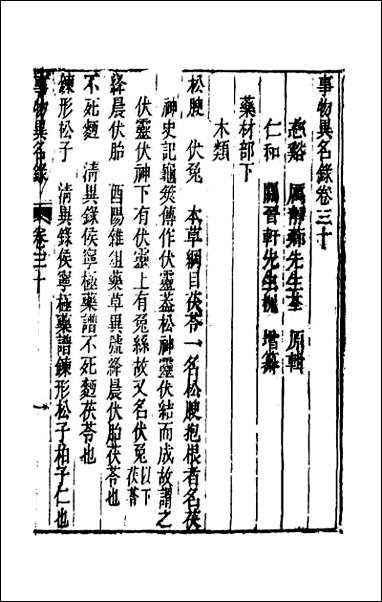 事物異名錄卷三十
慈谿 厲靜薌先生荃 原輯
仁和 關晉軒先生槐 增纂
藥材部下
木類
松腴 伏兔 本草綱目茯苓一名松腴抱根者名茯
神史記龜筴傳作伏靈蓋松神靈伏結而成故謂之
伏靈伏神下有伏靈上有兔絲故又名伏兔以下茯苓
絳晨伏胎 酉陽雜俎藥草異號絳晨伏胎茯苓也
不死麵 清異錄侯寧極藥譜不死麵茯苓也
鍊形松子 清異錄侯寧極藥譜鍊形松子柏子仁也
事物異名錄 卷三十 一